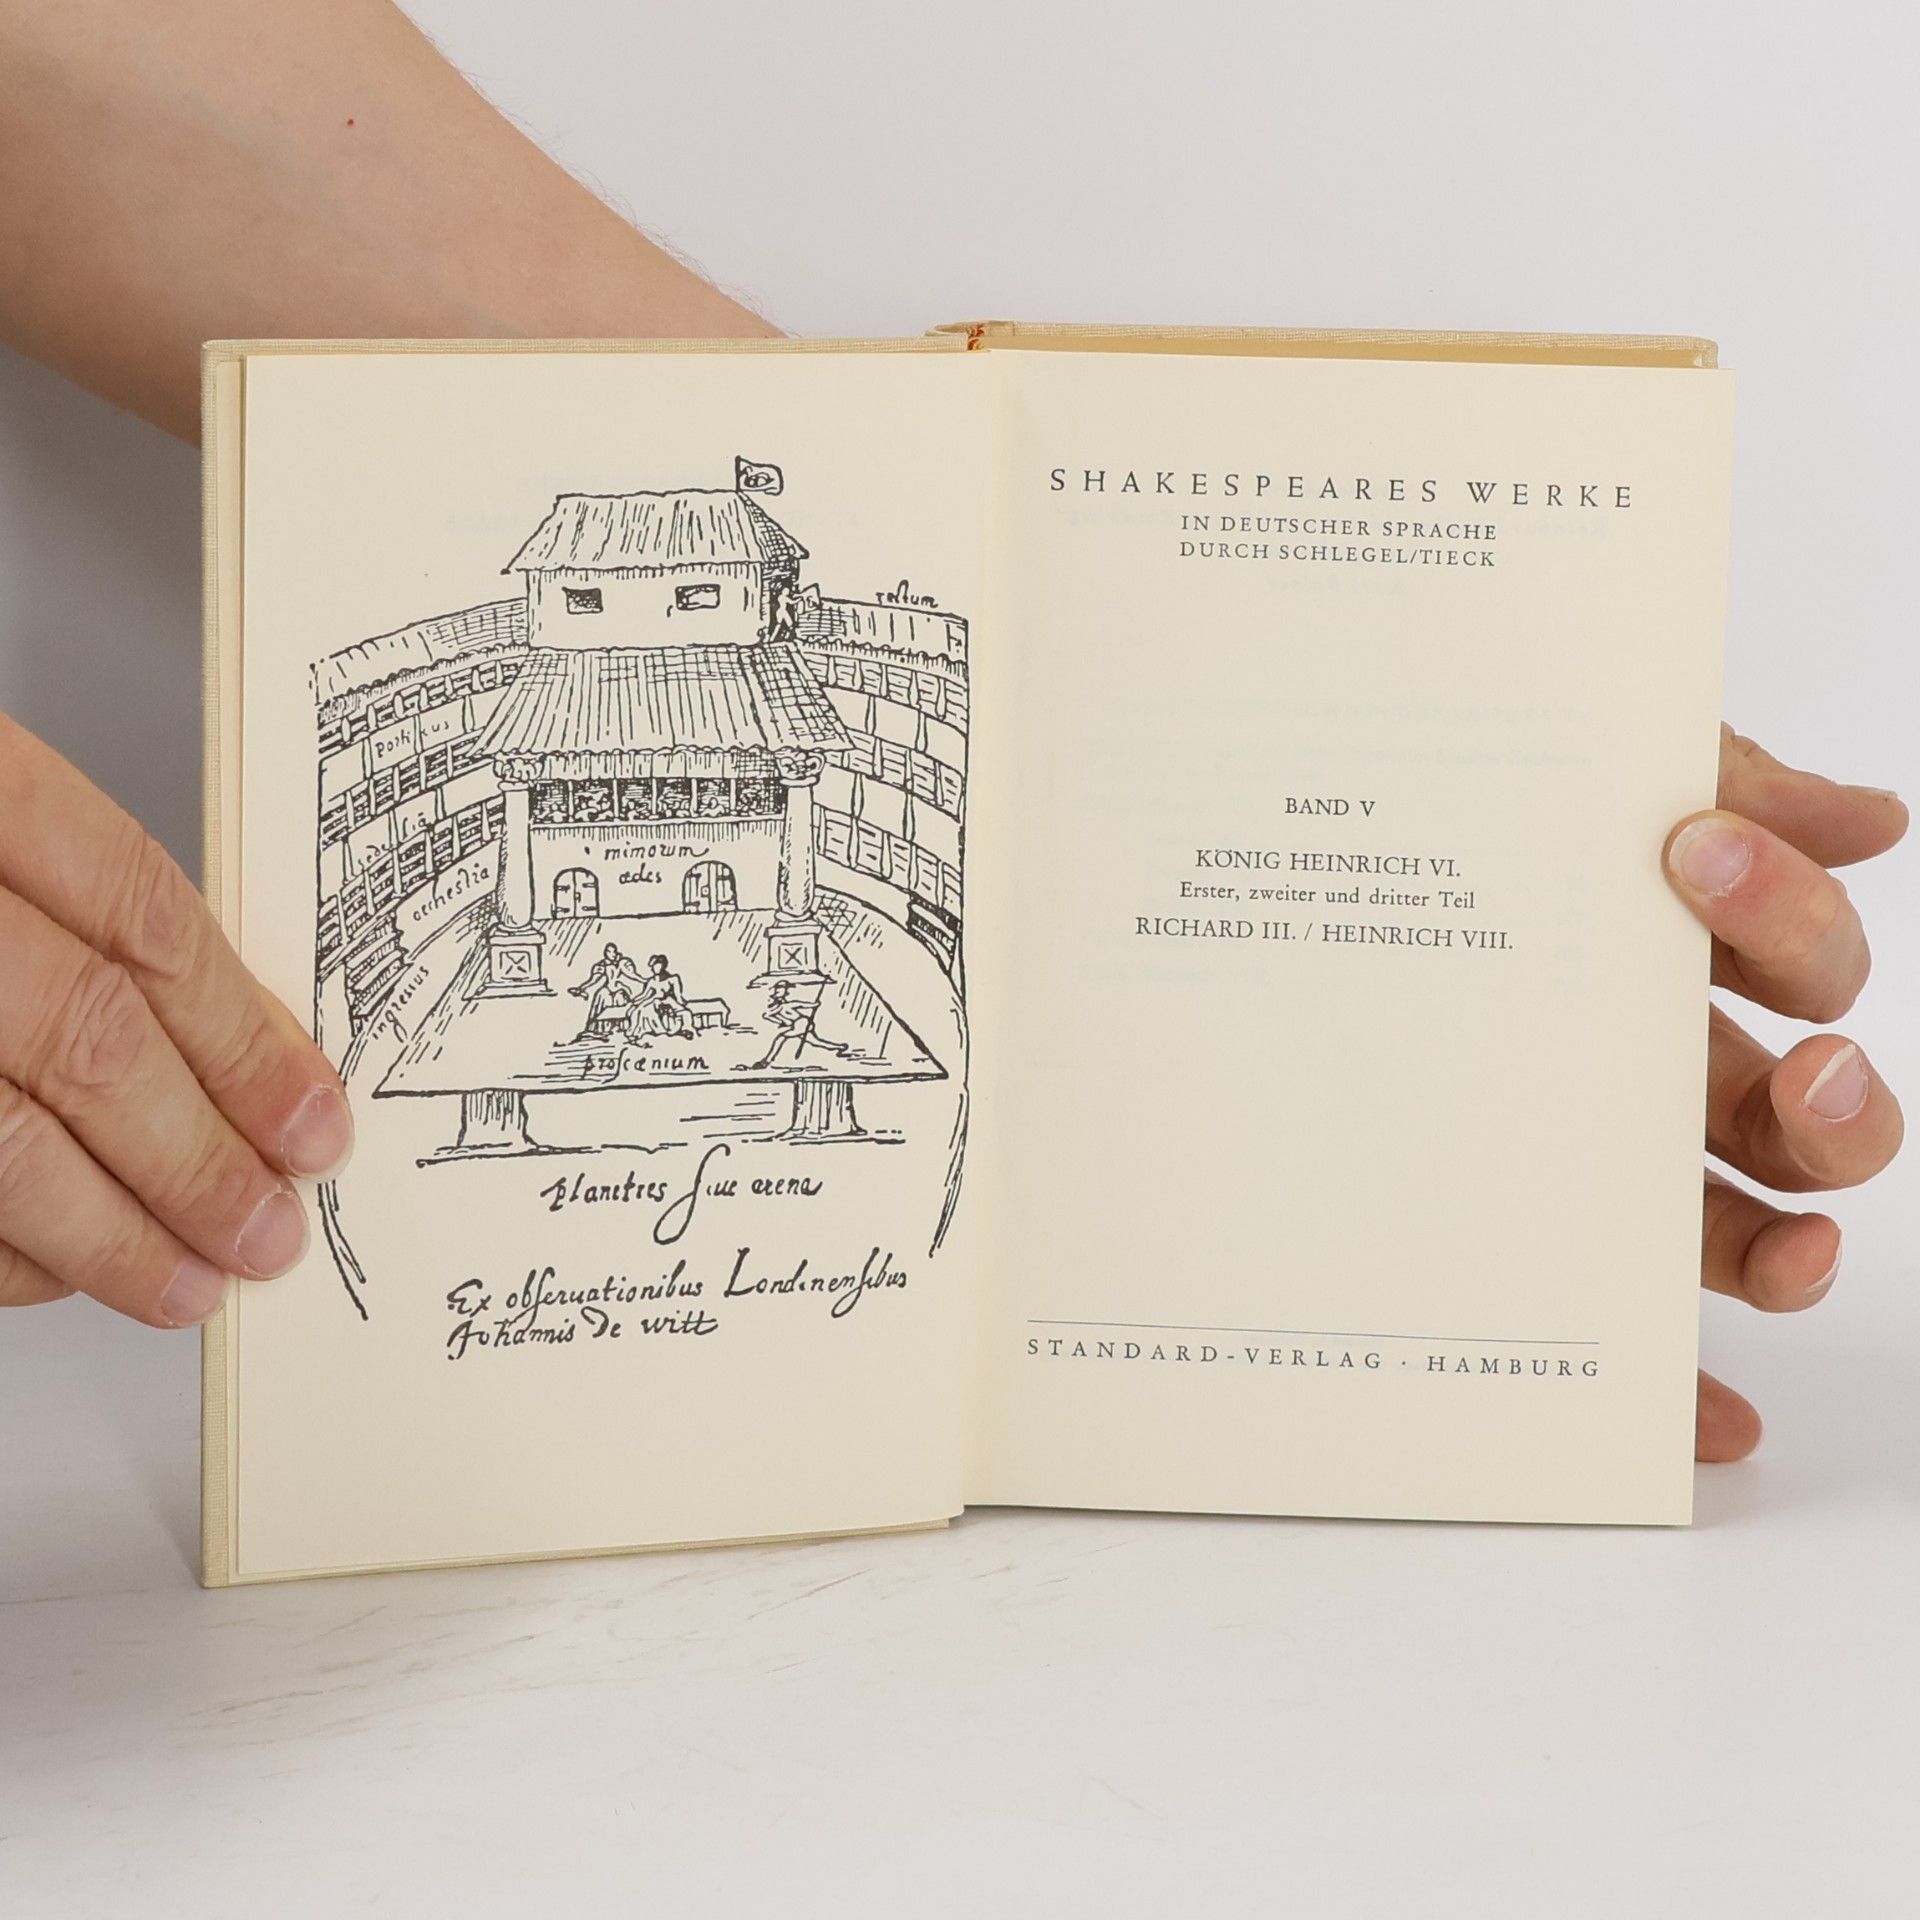 tectum
porticus
sedilia
orchestra
ingressus
mimorum
ædes
proscænium
planities siue arena
Ex obseruationibus Londinensibus
Johannis De witt
SHAKESPEARES WERKE
IN DEUTSCHER SPRACHE
DURCH SCHLEGEL/TIECK
BAND V
KÖNIG HEINRICH VI.
Erster, zweiter und dritter Teil
RICHARD III. / HEINRICH VIII.
STANDARD-VERLAG · HAMBURG